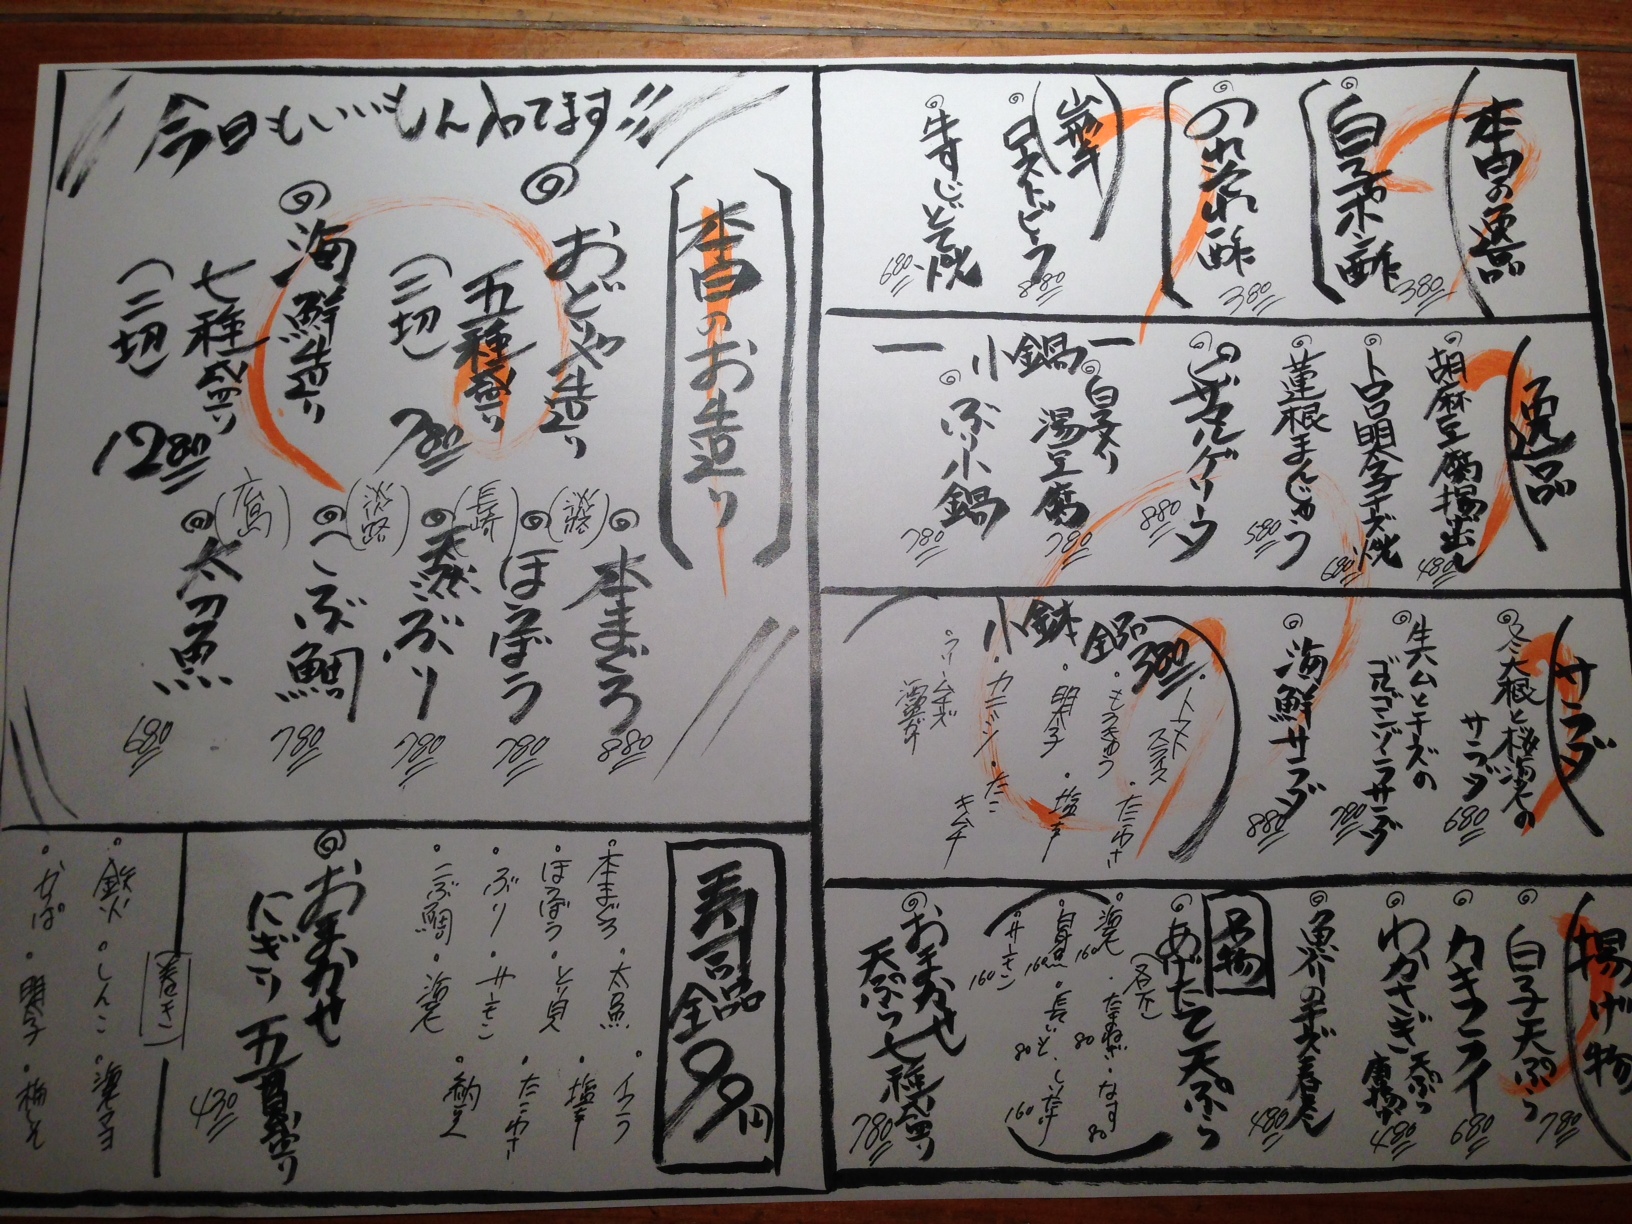 今日もいいもん入ってます!!
本日のお造り
おどりや造り
五種盛り
(二切)
780
海鮮造り
七種盛り
(二切)
1280
本まぐろ
880
(淡路)
ほうぼう
780
(長崎)
天然ぶり
780
(淡路)
こぶ鯛
780
太刀魚
680
本日の逸品
白子ポン酢
380
のれそれ酢
380
ローストビーフ
880
牛すじどて焼
680
逸品
胡麻豆腐揚出し
480
トロロ明太子チーズ焼
680
蓮根まんじゅう
580
880
小鍋
白子入り
湯豆腐
780
ぶり小鍋
780
サラダ
冬大根と桜海老の
サラダ
680
生ハムとチーズの
ゴルゴンゾーラサラダ
780
海鮮サラダ
880
小鉢
全品380
・トマトスライス
・もろきゅう
・たこわさ
・明太子
・塩辛
・カニミソ
・たこキムチ
・クリームチーズ
酒盗がけ
揚げ物
白子天ぷら
780
カキフライ
680
わかさぎ
天ぷら
唐揚げ
480
魚河岸のチーズ春巻
480
名物
あげたて天ぷら
・海老
160
・たまねぎ
80
・なす
80
・白身魚
160
・長いも
80
・しいたけ
160
・サーモン
160
おまかせ
天ぷら七種盛り
780
寿司
全品99円
・本まぐろ
・太刀魚
・イクラ
・ほうぼう
・とり貝
・塩辛
・ぶり
・サーモン
・たこわさ
・こぶ鯛
・海老
・納豆
おまかせ
にぎり五貫盛り
430
(巻き)
・鉄火
・しんこ
・海老マヨ
・かっぱ
・明太子
・梅しそ